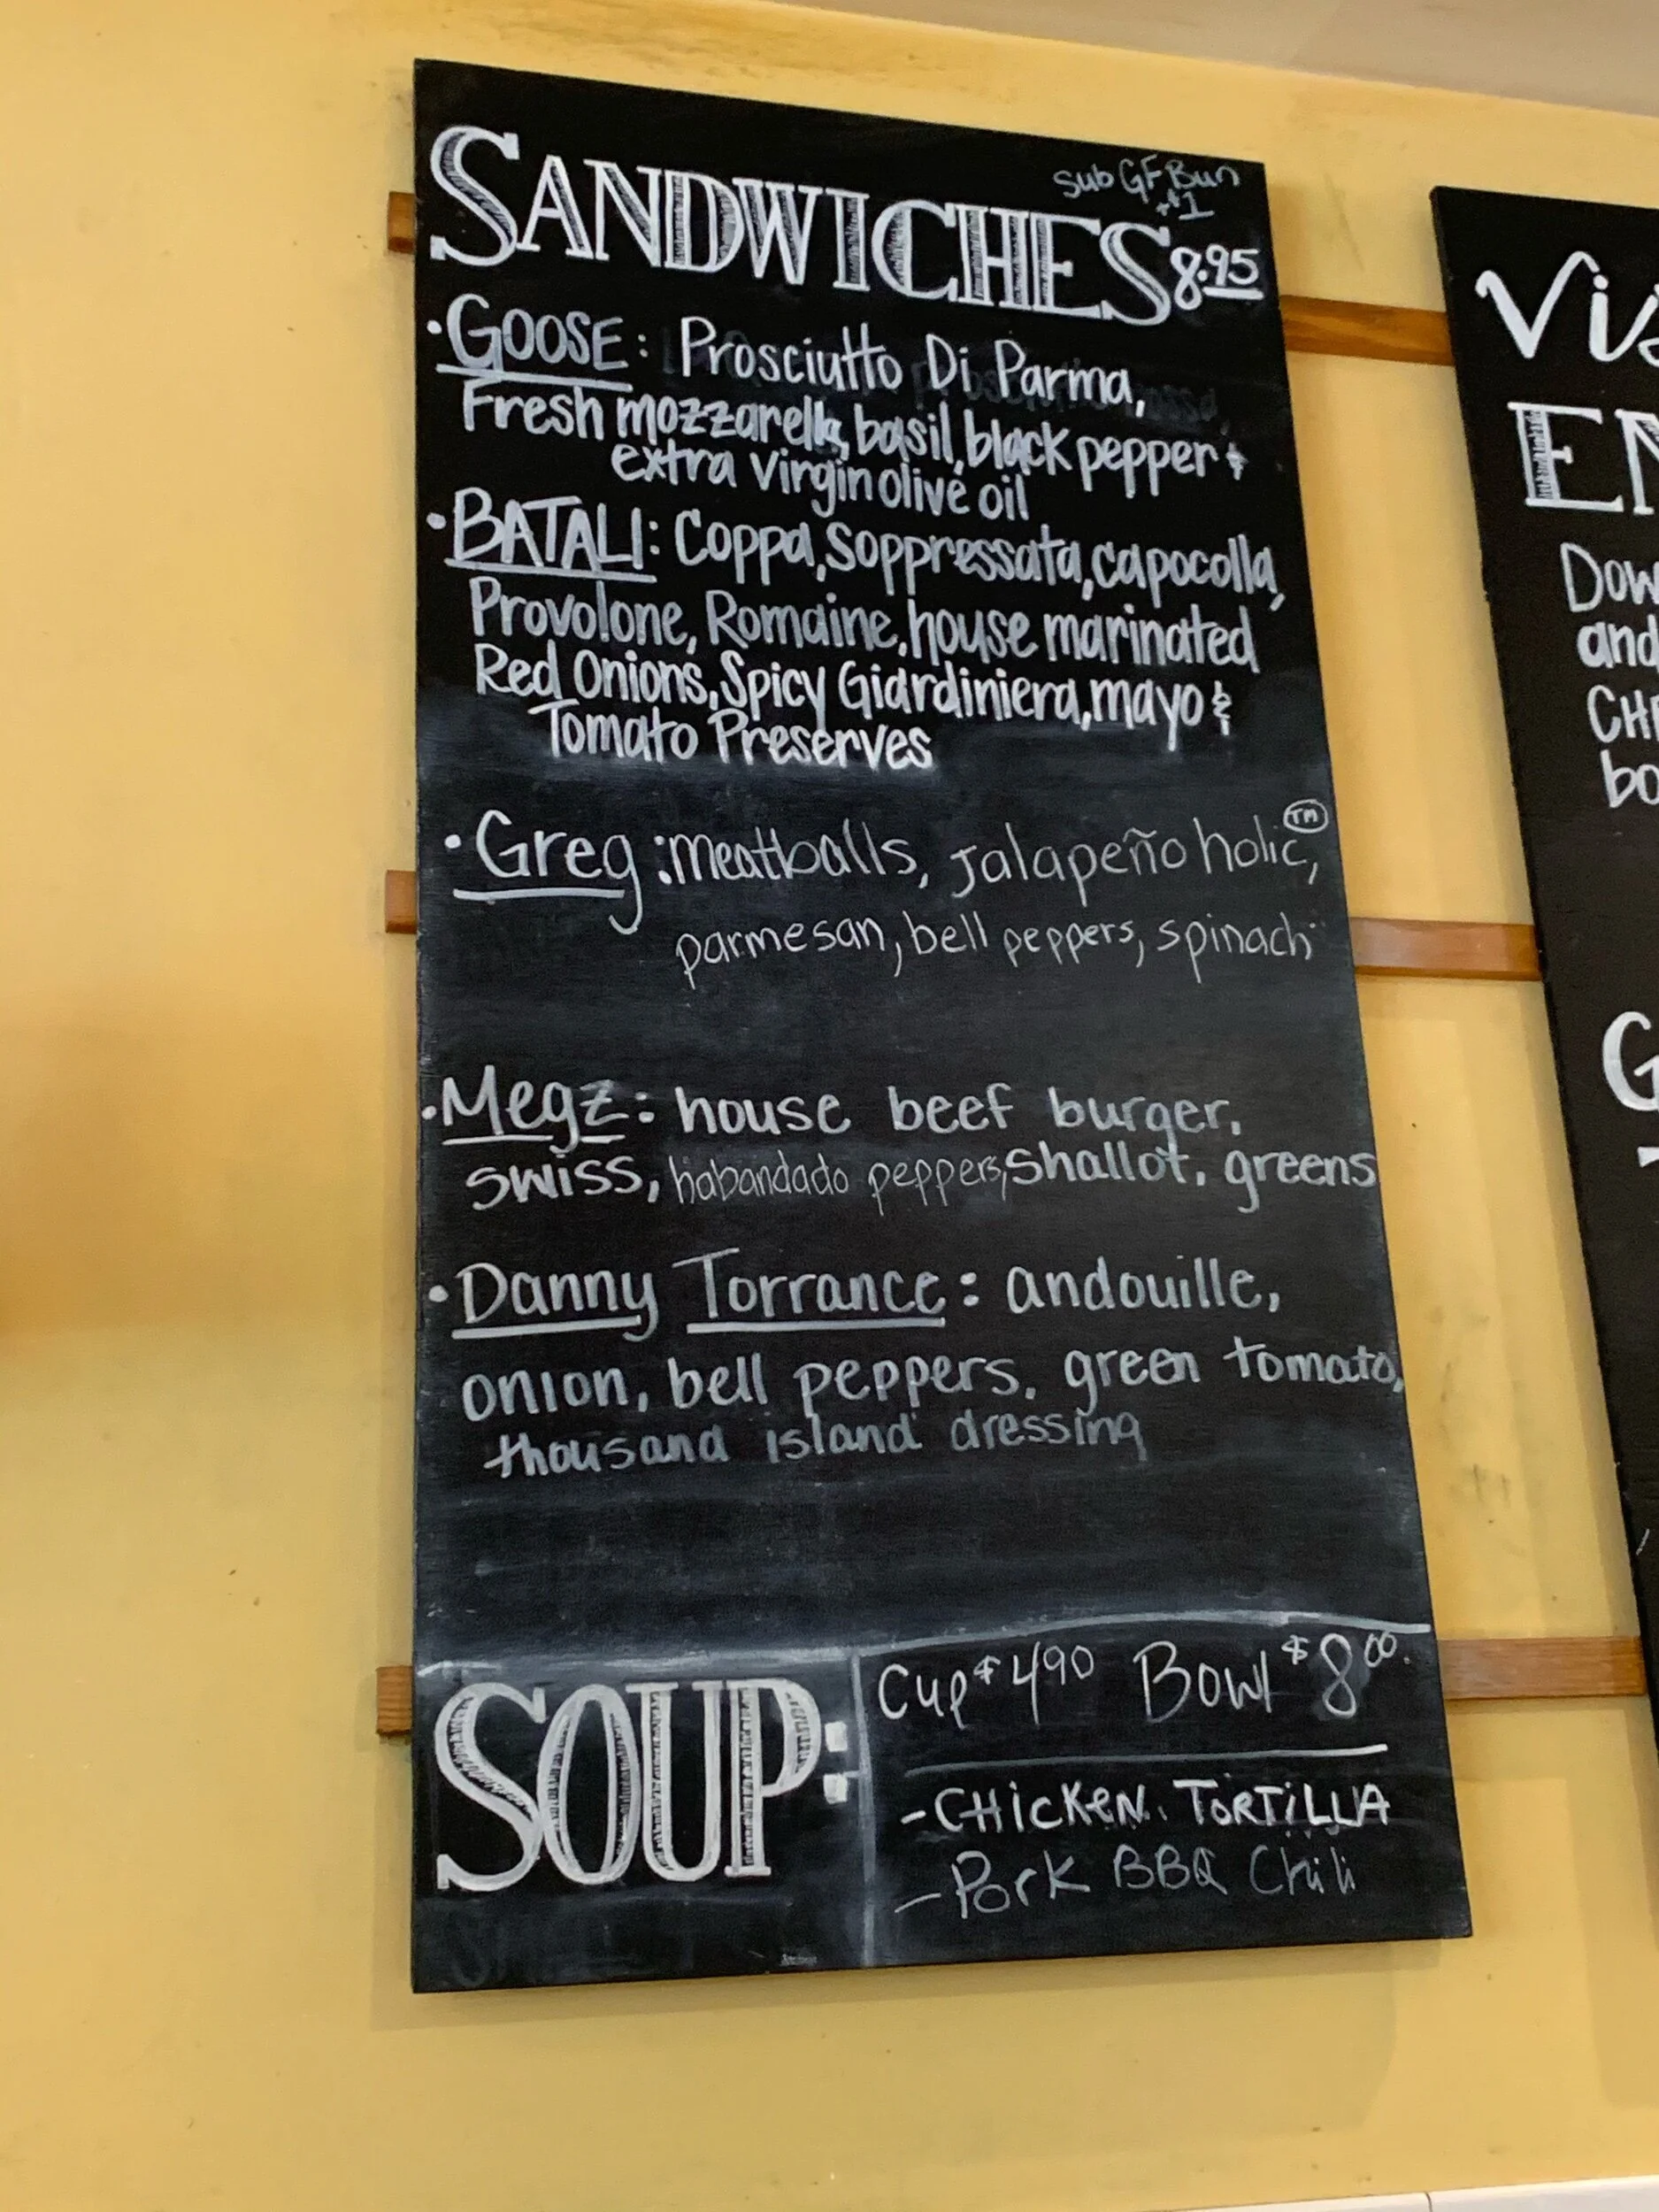 sub GF Bun
+$1
SANDWICHES 8.95
• GOOSE: Prosciutto Di Parma,
Fresh mozzarella, basil, black pepper &
extra virgin olive oil
• BATALI: Coppa, Soppressata, capocolla,
Provolone, Romaine, house marinated
Red Onions, Spicy Giardiniera, mayo &
Tomato Preserves
• Greg: meatballs, jalapeño holic™,
parmesan, bell peppers, spinach
• Megz: house beef burger,
swiss, habandado peppers, shallot, greens
• Danny Torrance: andouille,
onion, bell peppers, green tomato,
thousand island dressing
SOUP:
Cup $4.90 Bowl $8.00
- CHICKEN TORTILLA
- Pork BBQ Chili
Vis
EN
Dow
and
CHE
bo
G